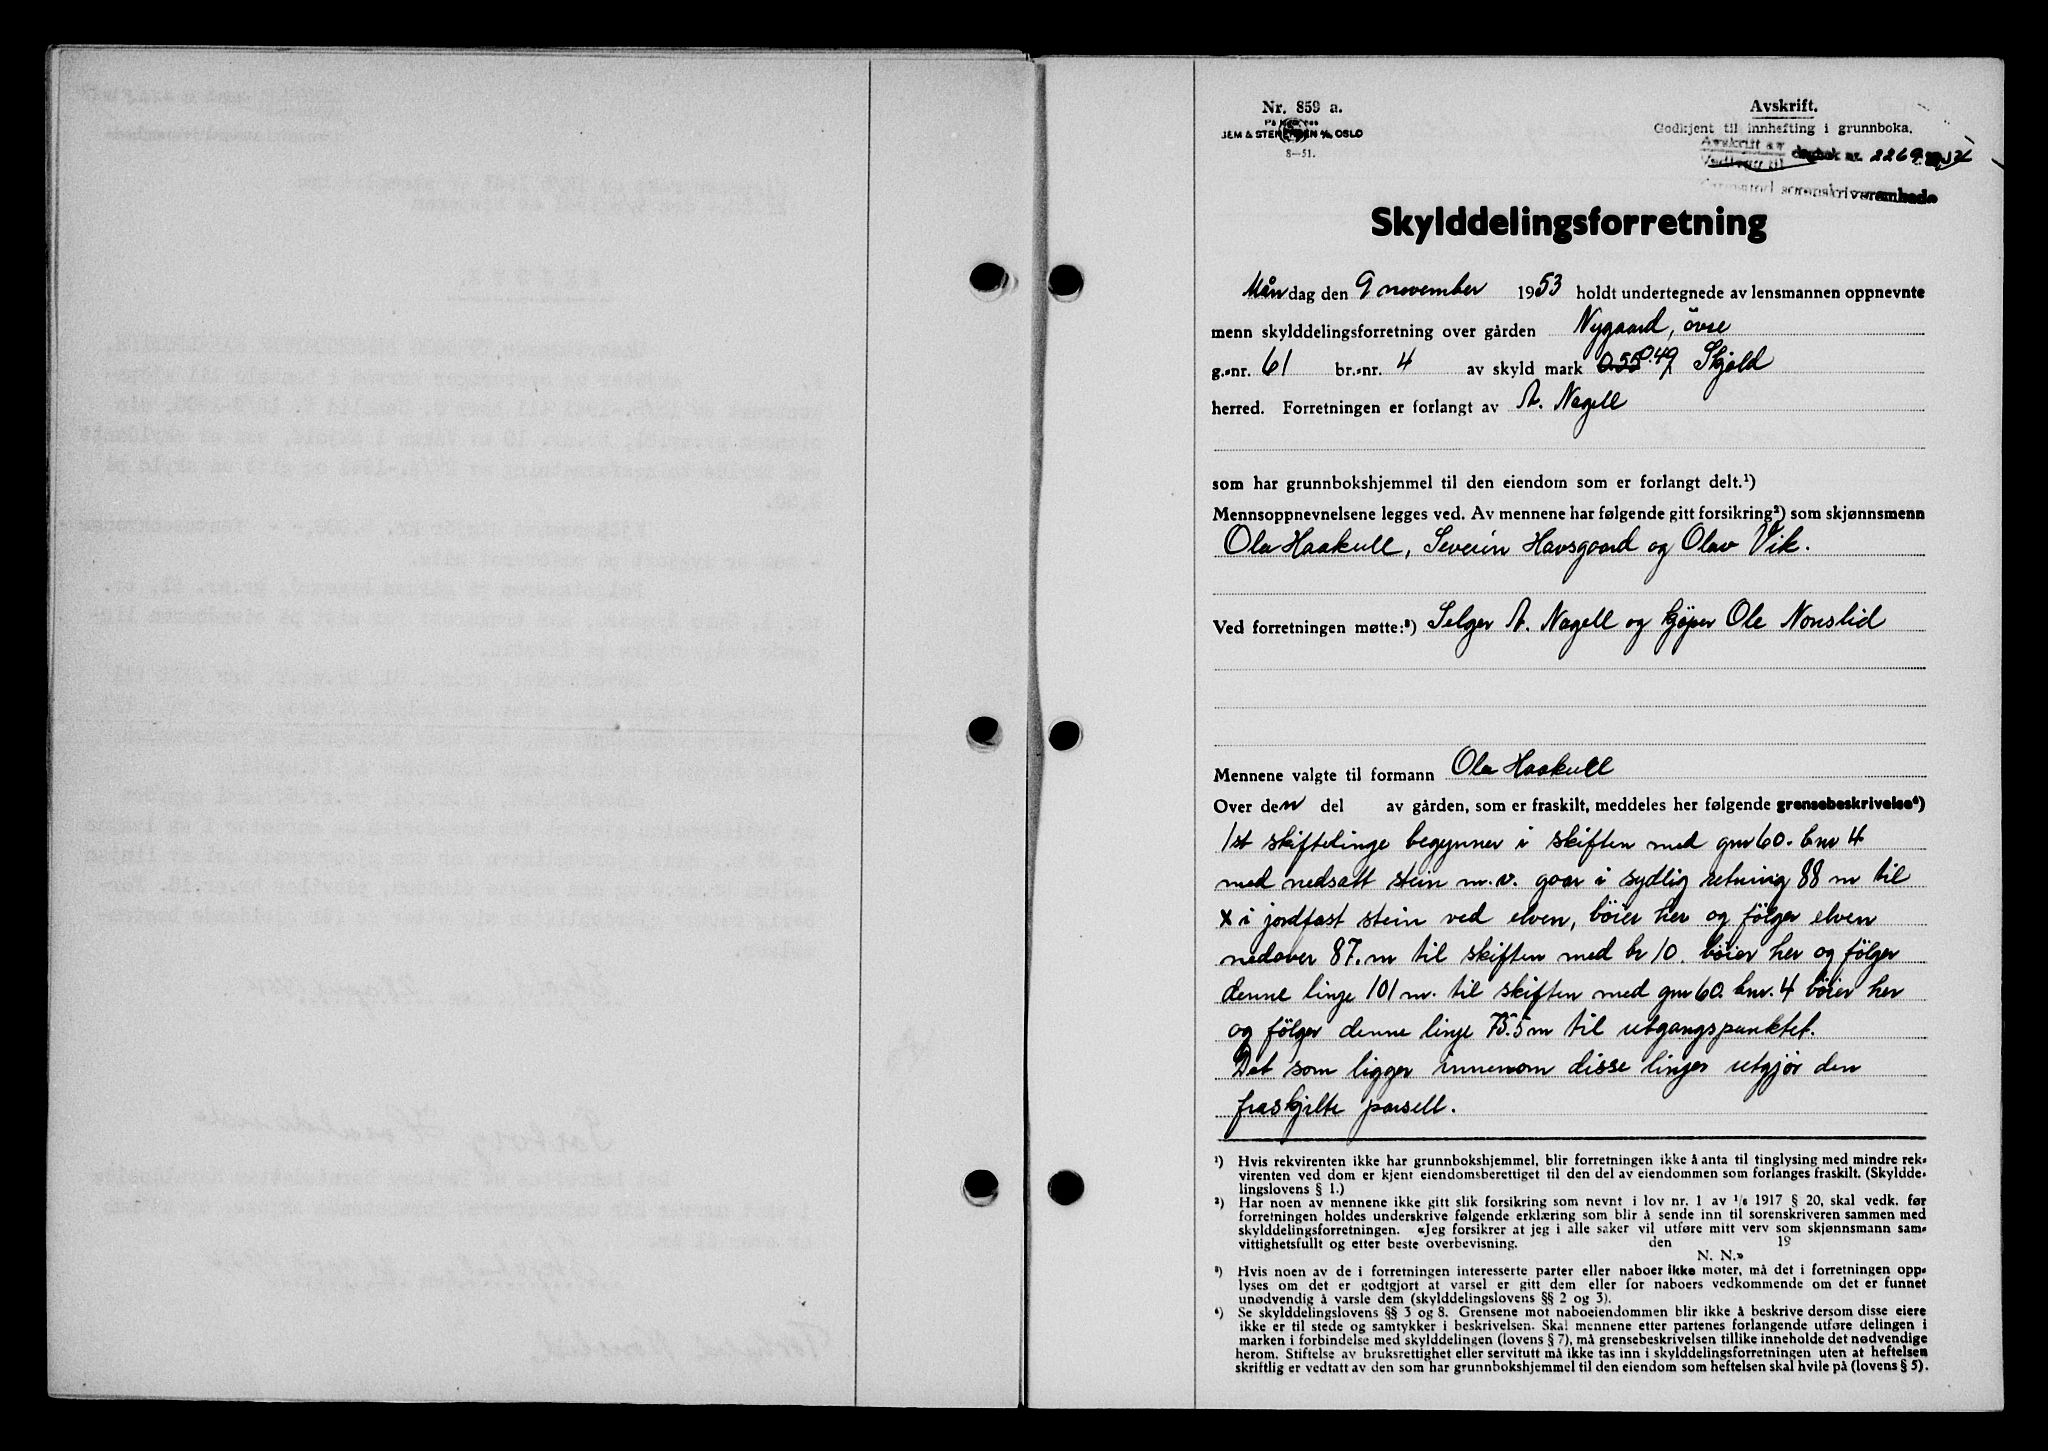 Nr. 859 a.
JEM & STENERSEN A/S, OSLO
8—51.
Avskrift.
Godkjent til innhefting i grunnboka.
Avskrift av
Vedlegg til dagbok nr. 2269
sorenskriverembede
Skylddelingsforretning
Måndag den 9 november 1953 holdt undertegnede av lensmannen oppnevnte
menn skylddelingsforretning over gården Nygaard, övre
g.-nr. 61 br.-nr. 4 av skyld mark 0.55 0.49, Skjold
herred. Forretningen er forlangt av A. Nagell
som har grunnbokshjemmel til den eiendom som er forlangt delt.¹)
Mennsoppnevnelsene legges ved. Av mennene har følgende gitt forsikring²) som skjønnsmenn
Ola Haakull, Severin Havsgaard og Olav Vik.
Ved forretningen møtte:³) Selger A. Nagell og kjöper Ole Nonslid
Mennene valgte til formann Ola Haakull
Over den del av gården, som er fraskilt, meddeles her følgende grensebeskrivelse⁴)
1st skiftelinge begynner i skiften med gnr 60. bnr 4
med nedsatt stein m.v. gaar i sydlig retning 88 m til
x i jordfast stein ved elven, böier her og fölger elven
nedover 87.m til skiften med br 10. böier her og fölger
denne linje 101 m. til skiften med gnr 60. bnr. 4 böier her
og fölger denne linje 75.5 m til utgangspunktet.
Det som ligger innenom disse linjer utgjör den
fraskjelte parsell.
¹) Hvis rekvirenten ikke har grunnbokshjemmel, blir forretningen ikke å anta til tinglysing med mindre rek-
virenten ved dom er kjent eiendomsberettiget til den del av eiendommen som forlanges fraskilt. (Skyldde-
lingslovens § 1.)
²) Har noen av mennene ikke gitt slik forsikring som nevnt i lov nr. 1 av 1/6 1917 § 20, skal vedk. før
forretningen holdes underskrive følgende erklæring som blir å sende inn til sorenskriveren sammen med
skylddelingsforretningen. «Jeg forsikrer at jeg i alle saker vil utføre mitt verv som skjønnsmann sam-
vittighetsfullt og etter beste overbevisning. den 19
N. N.»
³) Hvis noen av de i forretningen interesserte parter eller naboer ikke møter, må det i forretningen opp-
lyses om det er godtgjort at varsel er gitt dem eller for naboers vedkommende om det er funnet
unødvendig å varsle dem (skylddelingslovens §§ 2 og 3).
⁴) Se skylddelingslovens §§ 3 og 8. Grensene mot naboeiendommen blir ikke å beskrive dersom disse eiere
ikke er til stede og samtykker i beskrivelsen. Skal mennene etter partenes forlangende utføre delingen i
marken i forbindelse med skylddelingen (lovens § 7), må grensebeskrivelsen tillike inneholde det nødvendige
herom. Stiftelse av bruksrettighet eller servitutt må ikke tas inn i skylddelingsforretningen uten at heftelsen
skriftlig er vedtatt av den som har grunnbokshjemmel til den eiendom som heftelsen skal hvile på (lovens § 5).